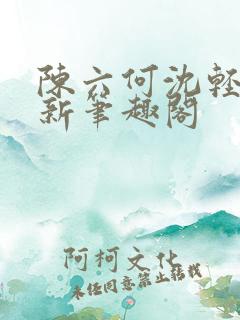 陳六何沈輕
新筆趣閣
阿柯文化
未經同意禁止轉載